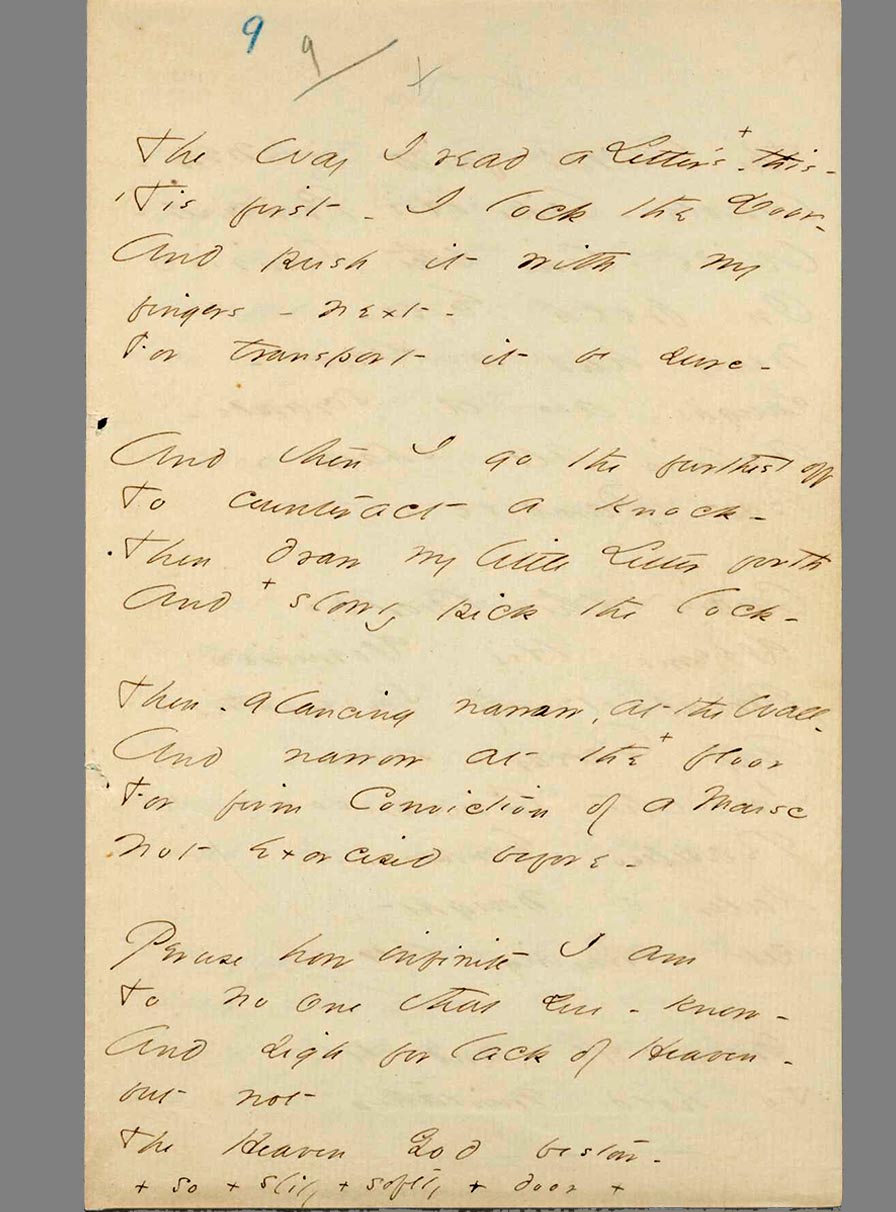 9 9 / +
The Way I read a Letter's + - this -
'Tis first - I lock the Door -
And push it with my
fingers - next -
For transport it be sure -
And then I go the furthest off
To counteract a knock -
Then draw my little Letter forth
And + slowly pick the lock -
Then - glancing narrow, at the Wall -
And narrow at the + floor
For firm Conviction of a Mouse
Not Exorcised before -
Peruse how infinite I am
To no one that You - know -
And sigh for lack of Heaven -
but not
The Heaven God bestow -
+ so + slily + softly + door +